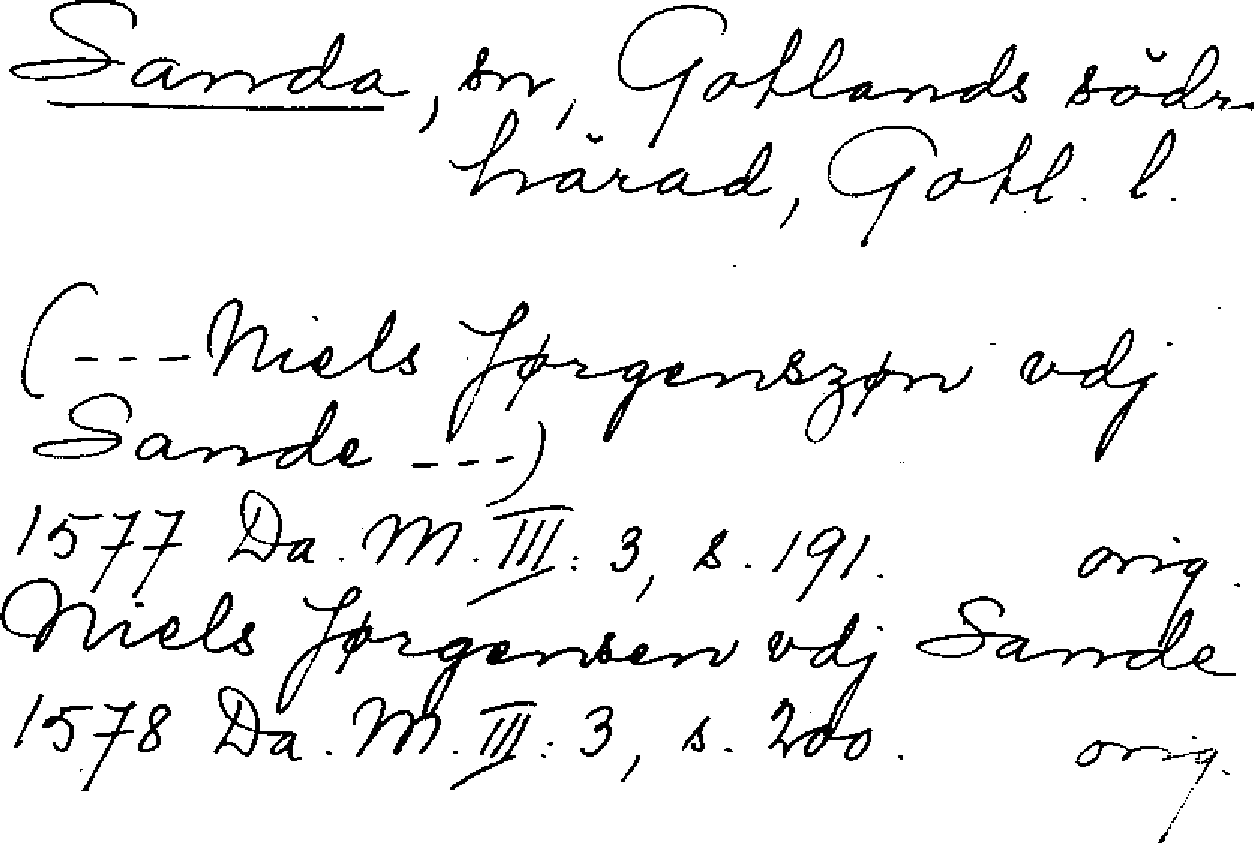 Sanda, sn, Gotlands södr
härad, Gotl. l.
(---Niels Jørgenszøn vdj
Sande ---)
1577 Da. M. III: 3, s. 191. orig.
Niels Jørgensen vdj Sande
1578 Da. M. III: 3, s. 200. orig.